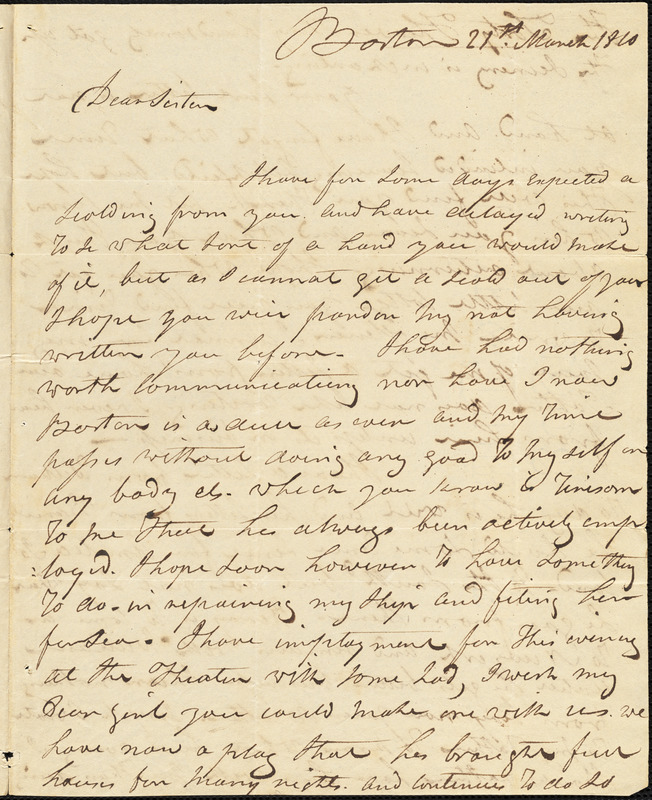 Boston 27th. March 1810
Dear Sister
I have for some days expected a
scolding from you. and have delayed writing
to se what sort of a hand you would make
of it, but as I cannot get a scold out of you
I hope you will pardon my not having
written you before - I have had nothing
worth communicating nor have I now
Boston is as dull as ever and my time
passes without doing any good to my self or
any body els - which you know is tiresom
to me that has always been actively emp-
:loyed. I hope soon however to have something
to do - in repairing my ship and fiting her
for Sea - I have imployment for this evening
at the Theater with some Lady I wish my
Dear girl you could make one with us. we
have now a play that has brought full
houses for many nights. and continues to do so